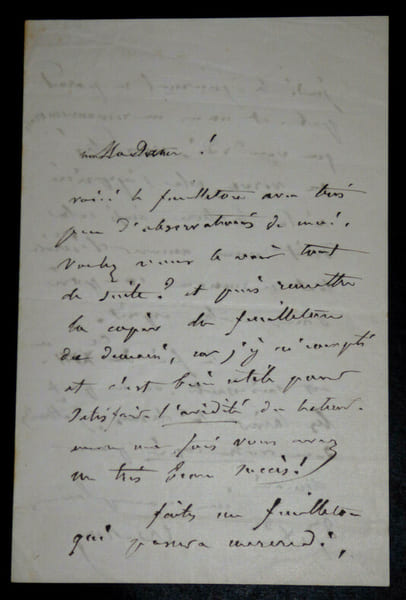 Madame !
voici le feuilleton avec très
peu d'observations de moi.
voulez vous le voir tout
de suite ? et puis remettre
la copie du feuilleton
de demain, car j'y ai compté
et c'est bien utile pour
satisfaire l'avidité du lecteur.
une fois vous avez
un très beau succès !
faites un feuilleton
qui passera mercredi,